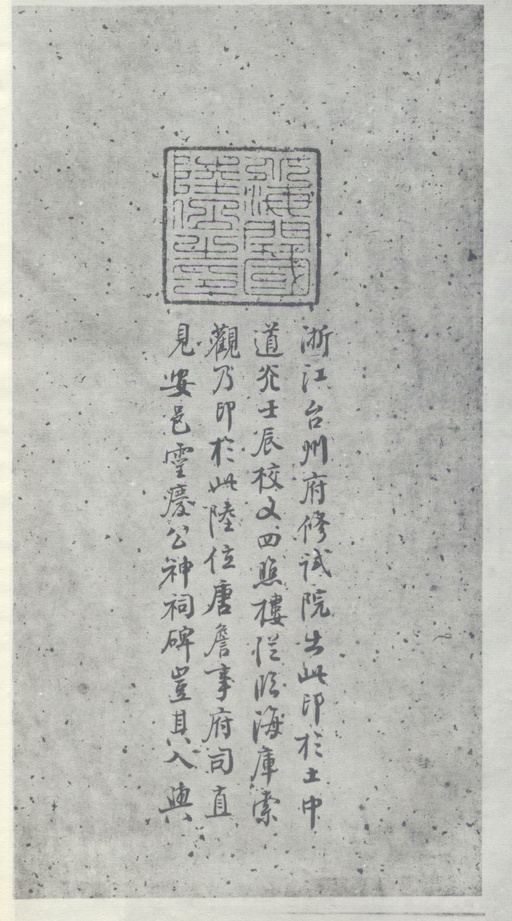 陸位之印
浙江台州府修試院出此印於土中
道光壬辰校文四照樓從臨海庫索
觀乃印於此陸位唐詹事府司直
見安邑靈慶公神祠碑豈其人與